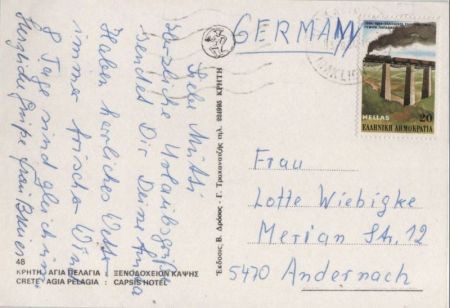 Liebe Mutti
Herzliche Urlaubsgrüße
sendet Dir Deine Anna
Haben herrliches Wetter
immer frischer Wind
8 Tage sind gleich um
Herzliche Grüße Frau
48
ΚΡΗΤΗ, ΑΓΙΑ ΠΕΛΑΓΙΑ : ΞΕΝΟΔΟΧΕΙΟΝ ΚΑΨΗΣ
CRETE, AGIA PELAGIA : CAPSIS HOTEL
Εκδοσις Β. Δρόσος - Γ. Τραχανατζής τηλ. ΚΡΗΤΗ
GERMANY
HELLAS 20
ΕΛΛΗΝΙΚΗ ΔΗΜΟΚΡΑΤΙΑ
Frau
Lotte Wiebigke
Merian Str. 12
5470 Andernach